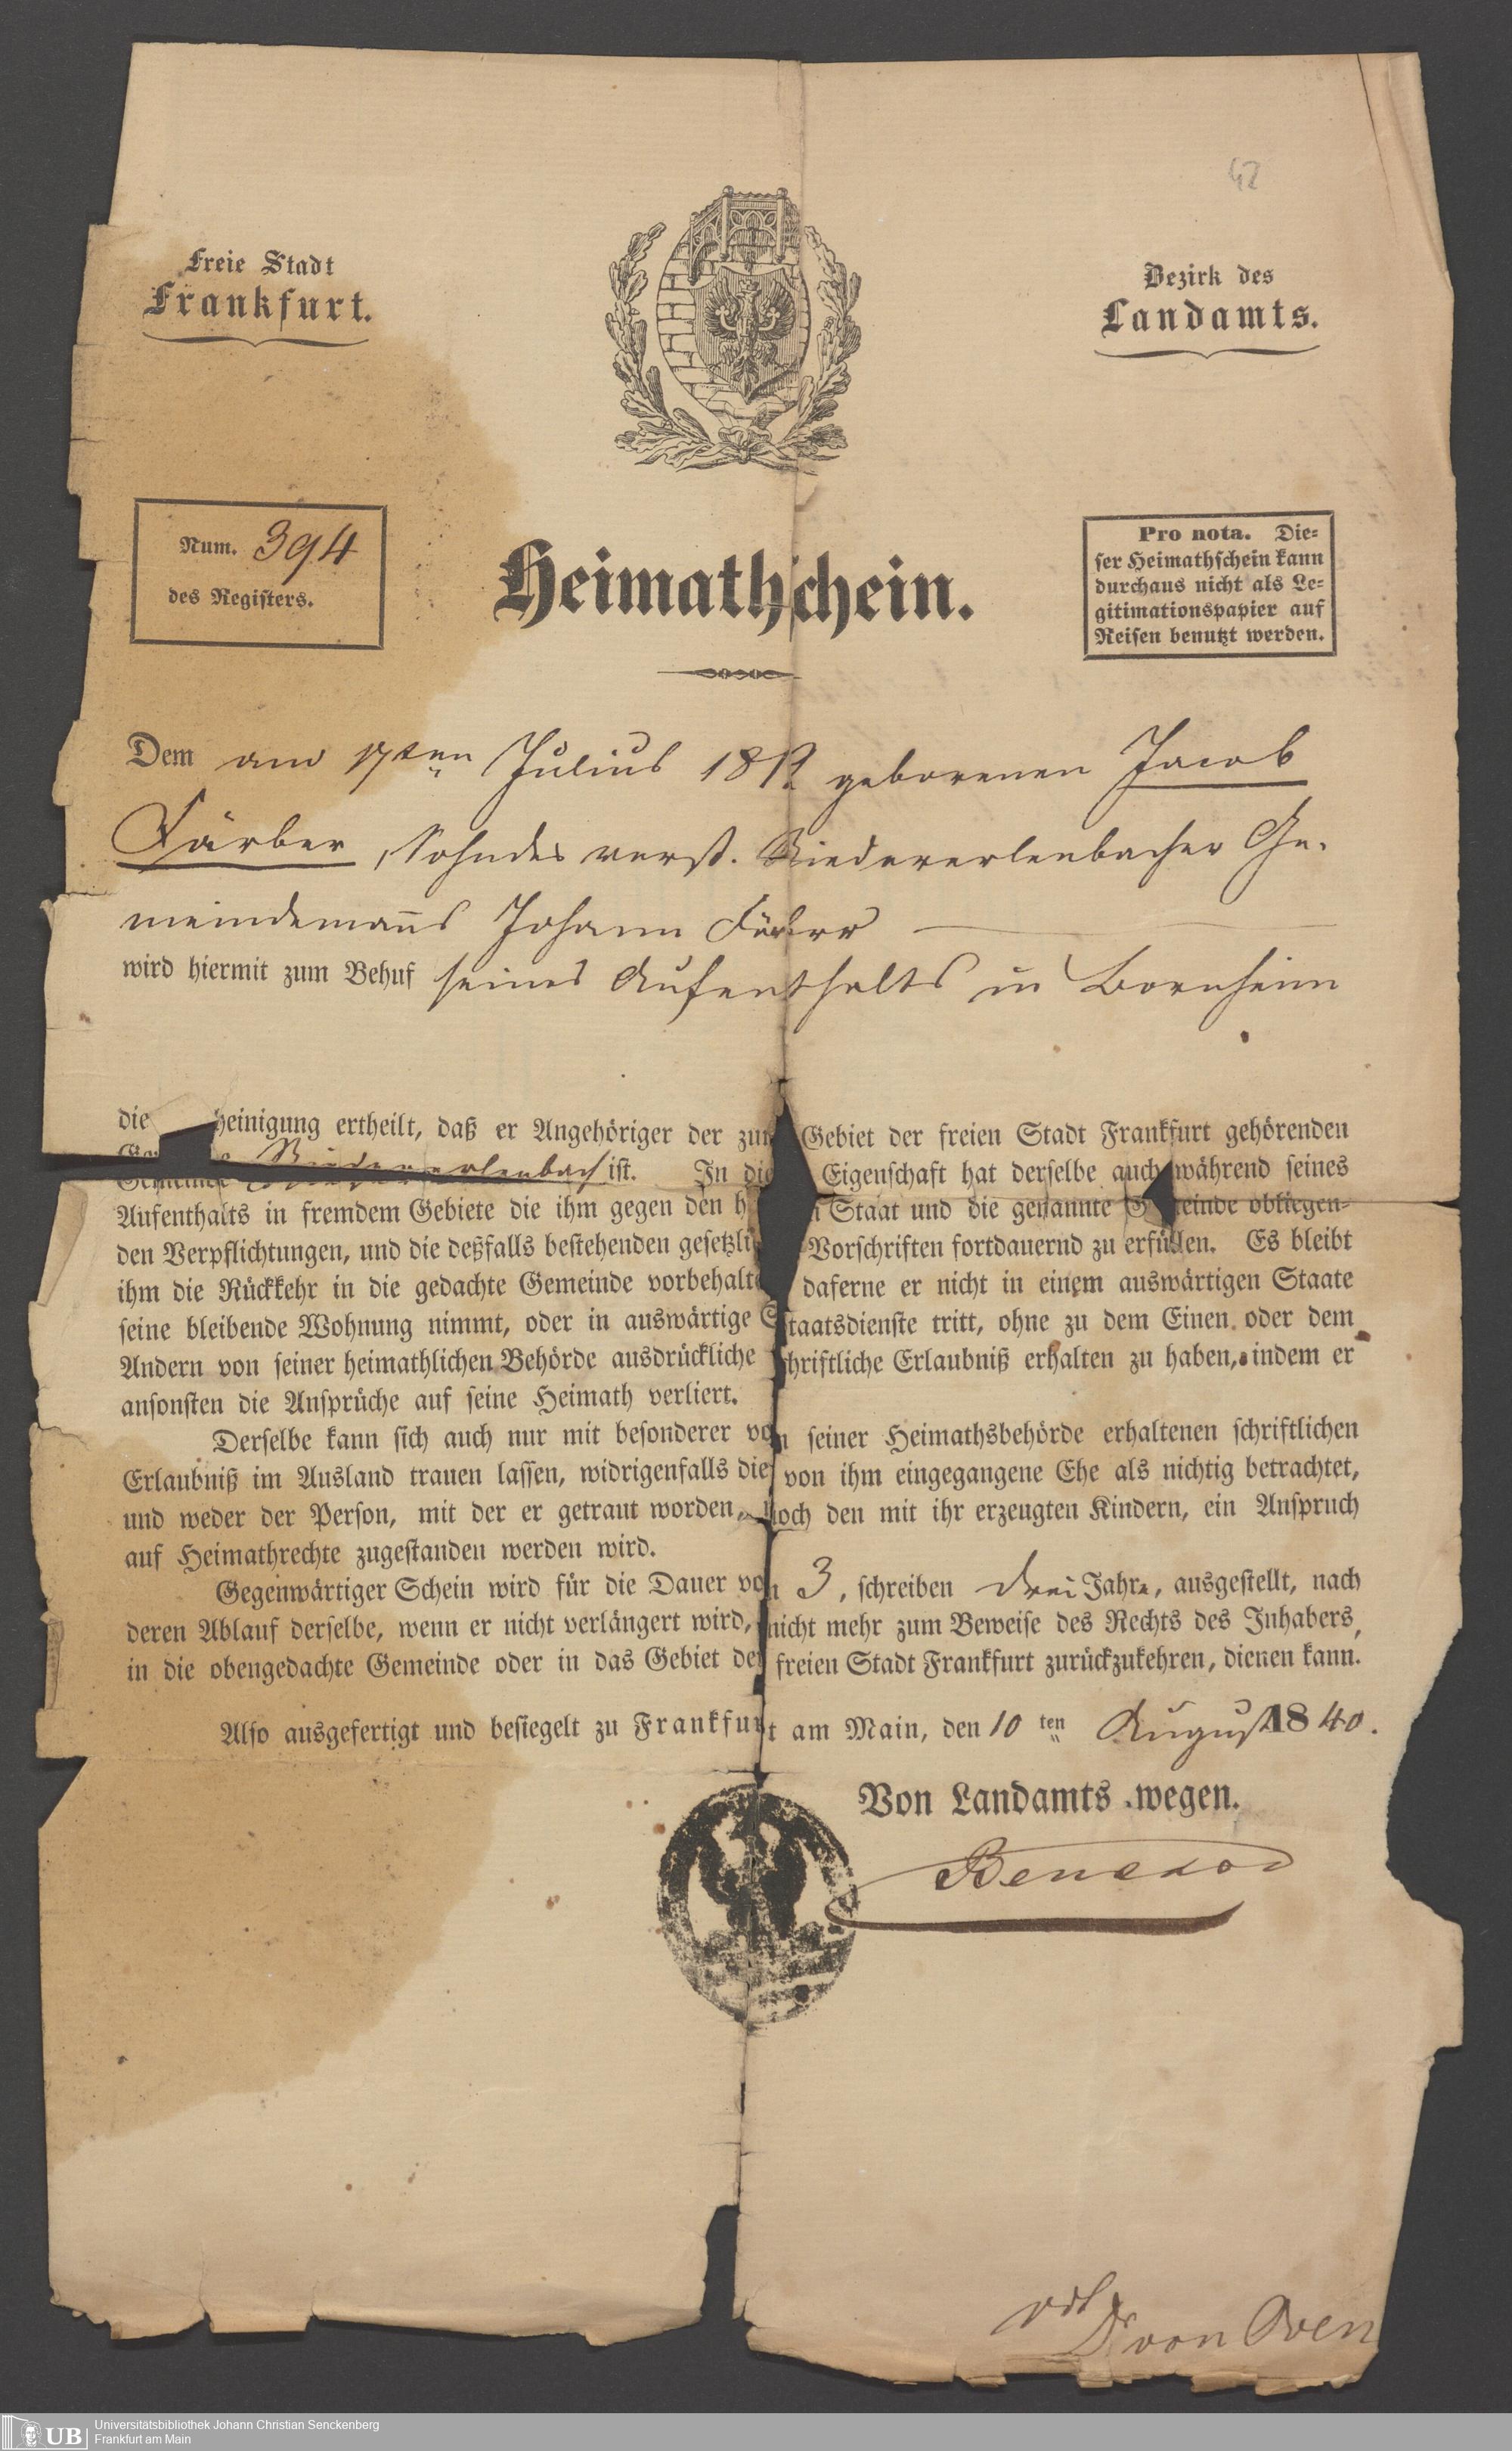 42
Freie Stadt
Frankfurt.
Bezirk des
Landamts.
Num. 394
des Registers.
Heimathschein.
Pro nota. Die=
ser Heimathschein kann
durchaus nicht als Le=
gitimationspapier auf
Reisen benutzt werden.
Dem am 17ten Julius 1812 geborenen Jacob
Färber, Sohn des verst. Niedererlenbacher Ge.
meindemanns Johann Färber
wird hiermit zum Behuf seines Aufenthalts in Bornheim
die heinigung ertheilt, daß er Angehöriger der zum Gebiet der freien Stadt Frankfurt gehörenden
Gemeinde Niedererlenbach ist. In die Eigenschaft hat derselbe auch während seines
Aufenthalts in fremdem Gebiete die ihm gegen den h n Staat und die genannte Gemeinde obliegen=
den Verpflichtungen, und die deßfalls bestehenden gesetzli Vorschriften fortdauernd zu erfüllen. Es bleibt
ihm die Rückkehr in die gedachte Gemeinde vorbehalte daferne er nicht in einem auswärtigen Staate
seine bleibende Wohnung nimmt, oder in auswärtige Staatsdienste tritt, ohne zu dem Einen oder dem
Andern von seiner heimathlichen Behörde ausdrückliche schriftliche Erlaubniß erhalten zu haben, indem er
ansonsten die Ansprüche auf seine Heimath verliert.
Derselbe kann sich auch nur mit besonderer von seiner Heimathsbehörde erhaltenen schriftlichen
Erlaubniß im Ausland trauen lassen, widrigenfalls die von ihm eingegangene Ehe als nichtig betrachtet,
und weder der Person, mit der er getraut worden, noch den mit ihr erzeugten Kindern, ein Anspruch
auf Heimathrechte zugestanden werden wird.
Gegenwärtiger Schein wird für die Dauer von 3, schreiben drei Jahre, ausgestellt, nach
deren Ablauf derselbe, wenn er nicht verlängert wird, nicht mehr zum Beweise des Rechts des Inhabers,
in die obengedachte Gemeinde oder in das Gebiet der freien Stadt Frankfurt zurückzukehren, dienen kann.
Also ausgefertigt und besiegelt zu Frankfurt am Main, den 10ten August 1840.
Von Landamts wegen.
vdt
Dr von Oven
UB
Universitätsbibliothek Johann Christian Senckenberg
Frankfurt am Main